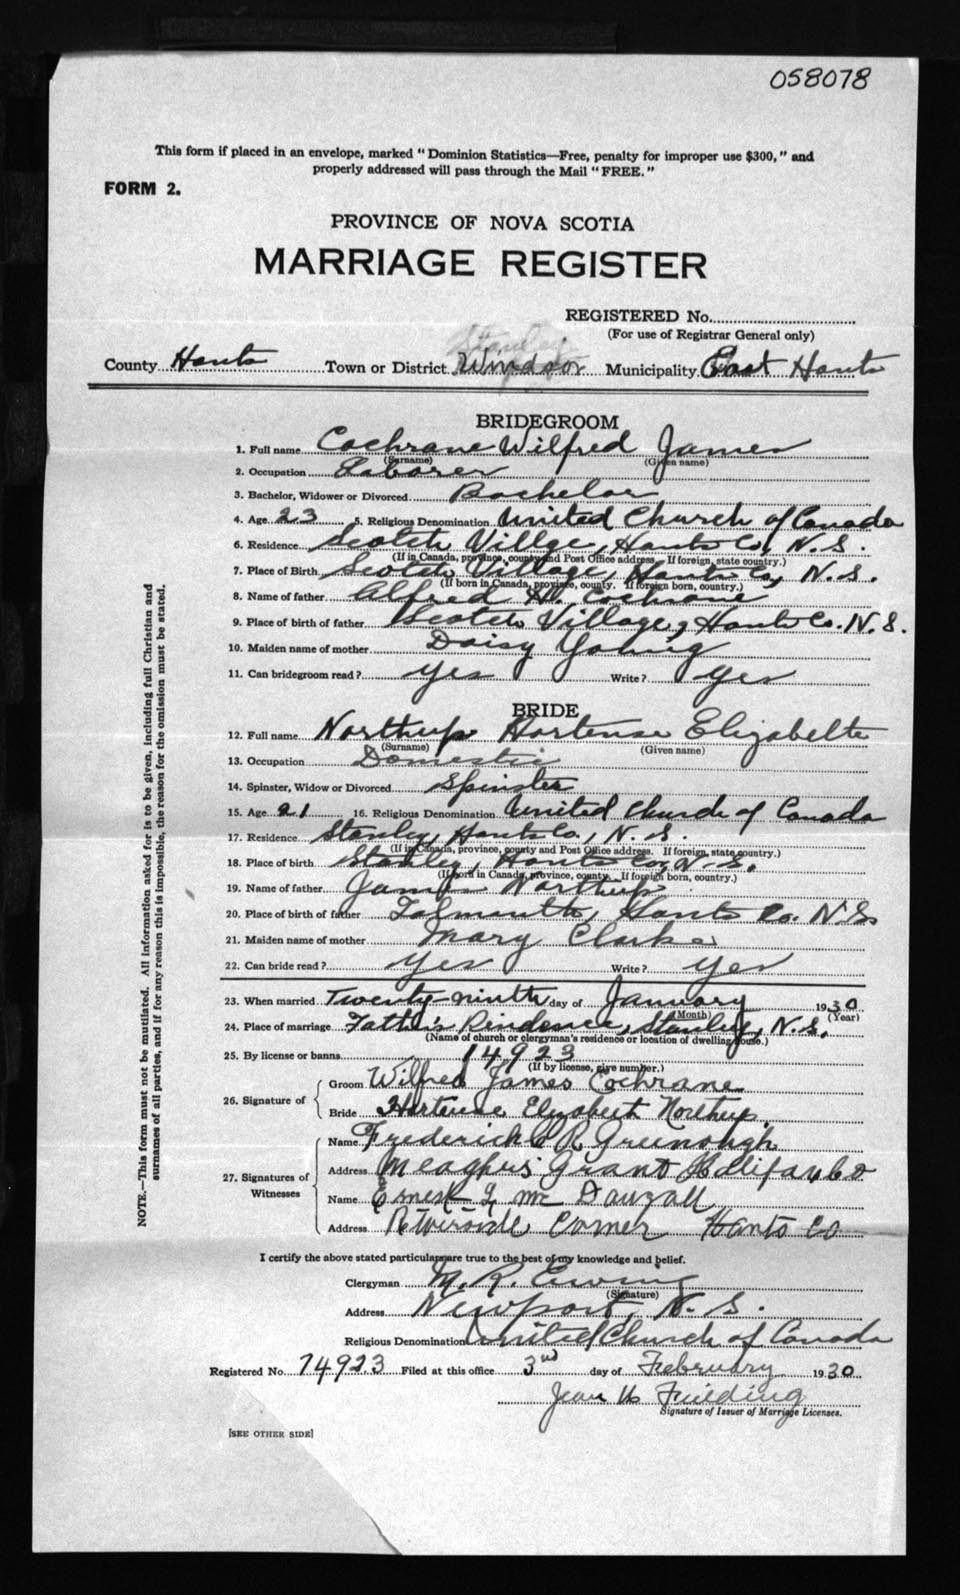 058078
This form if placed in an envelope, marked "Dominion Statistics—Free, penalty for improper use $300," and
properly addressed will pass through the Mail "FREE."
FORM 2.
PROVINCE OF NOVA SCOTIA
MARRIAGE REGISTER
REGISTERED No.
(For use of Registrar General only)
Stanley
County Hants Town or District Windsor Municipality East Hants
BRIDEGROOM
1. Full name Cochrane Wilfred James
(Surname) (Given name)
2. Occupation Laborer
3. Bachelor, Widower or Divorced Bachelor
4. Age 23 5. Religious Denomination United Church of Canada
6. Residence Scotch Villge, Hants Co, N.S.
(If in Canada, province, county and Post Office address. If foreign, state country.)
7. Place of Birth Scotch Village, Hants Co, N.S.
(If born in Canada, province, county. If foreign born, country.)
8. Name of father Alfred H. Cochrane
9. Place of birth of father Scotch Village, Hants Co. N.S.
10. Maiden name of mother Daisy Young
11. Can bridegroom read? Yes Write? Yes
BRIDE
12. Full name Northup Hortense Elizabeth
(Surname) (Given name)
13. Occupation Domestic
14. Spinster, Widow or Divorced Spinster
15. Age 21 16. Religious Denomination United Church of Canada
17. Residence Stanley, Hants Co., N.S.
(If in Canada, province, county and Post Office address. If foreign, state country.)
18. Place of birth Stanley, Hants Co, N.S.
(If born in Canada, province, county. If foreign born, country.)
19. Name of father James Northup
20. Place of birth of father Falmouth, Hants Co. N.S.
21. Maiden name of mother Mary Clarke
22. Can bride read? Yes Write? Yes
23. When married Twenty-ninth day of January 1930
(Month) (Year)
24. Place of marriage Father's Residence, Stanley, N.S.
(Name of church or clergyman's residence or location of dwelling house.)
25. By license or banns 14923
(If by license, give number.)
26. Signature of
Groom Wilfred James Cochrane
Bride Hortense Elizabeth Northup
27. Signatures of Witnesses
Name Frederick R Greenough
Address Meaghers Grant Halifax Co
Name Ernest Mc Dougall
Address Riverside Corner Hants Co
I certify the above stated particulars are true to the best of my knowledge and belief.
Clergyman M. R. Ewing
(Signature)
Address Newport, N.S.
Religious Denomination United Church of Canada
Registered No. 14923 Filed at this office 3rd day of February 1930
Jean Fielding
Signature of Issuer of Marriage Licenses.
[SEE OTHER SIDE]
NOTE.—This form must not be mutilated. All information asked for is to be given, including full Christian and
surnames of all parties, and if for any reason this is impossible, the reason for the omission must be stated.